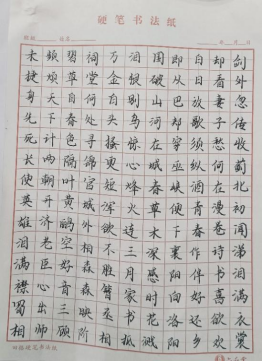 硬笔书法纸
剑外忽传收蓟北初闻涕泪满衣裳
却看妻子愁何在漫卷诗书喜欲狂
白日放歌须纵酒青春作伴好还乡
即从巴峡穿巫峡便下襄阳向洛阳
国破山河在城春草木深感时花溅
泪恨别鸟惊心烽火连三月家书抵
万金白头搔更短浑欲不胜簪丞相
祠堂何处寻锦官城外柏森森映阶
碧草自春色隔叶黄鹂空好音三顾
频烦天下计两朝开济老臣心出师
未捷身先死长使英雄泪满襟蜀相